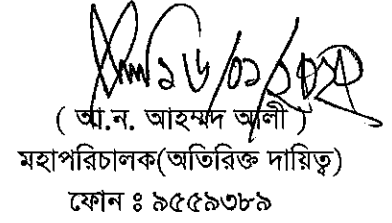 ( আ.ন. আহম্মদ আলী )
মহাপরিচালক(অতিরিক্ত দায়িত্ব)
ফোন ঃ ৯৫৫৯৩৮৯